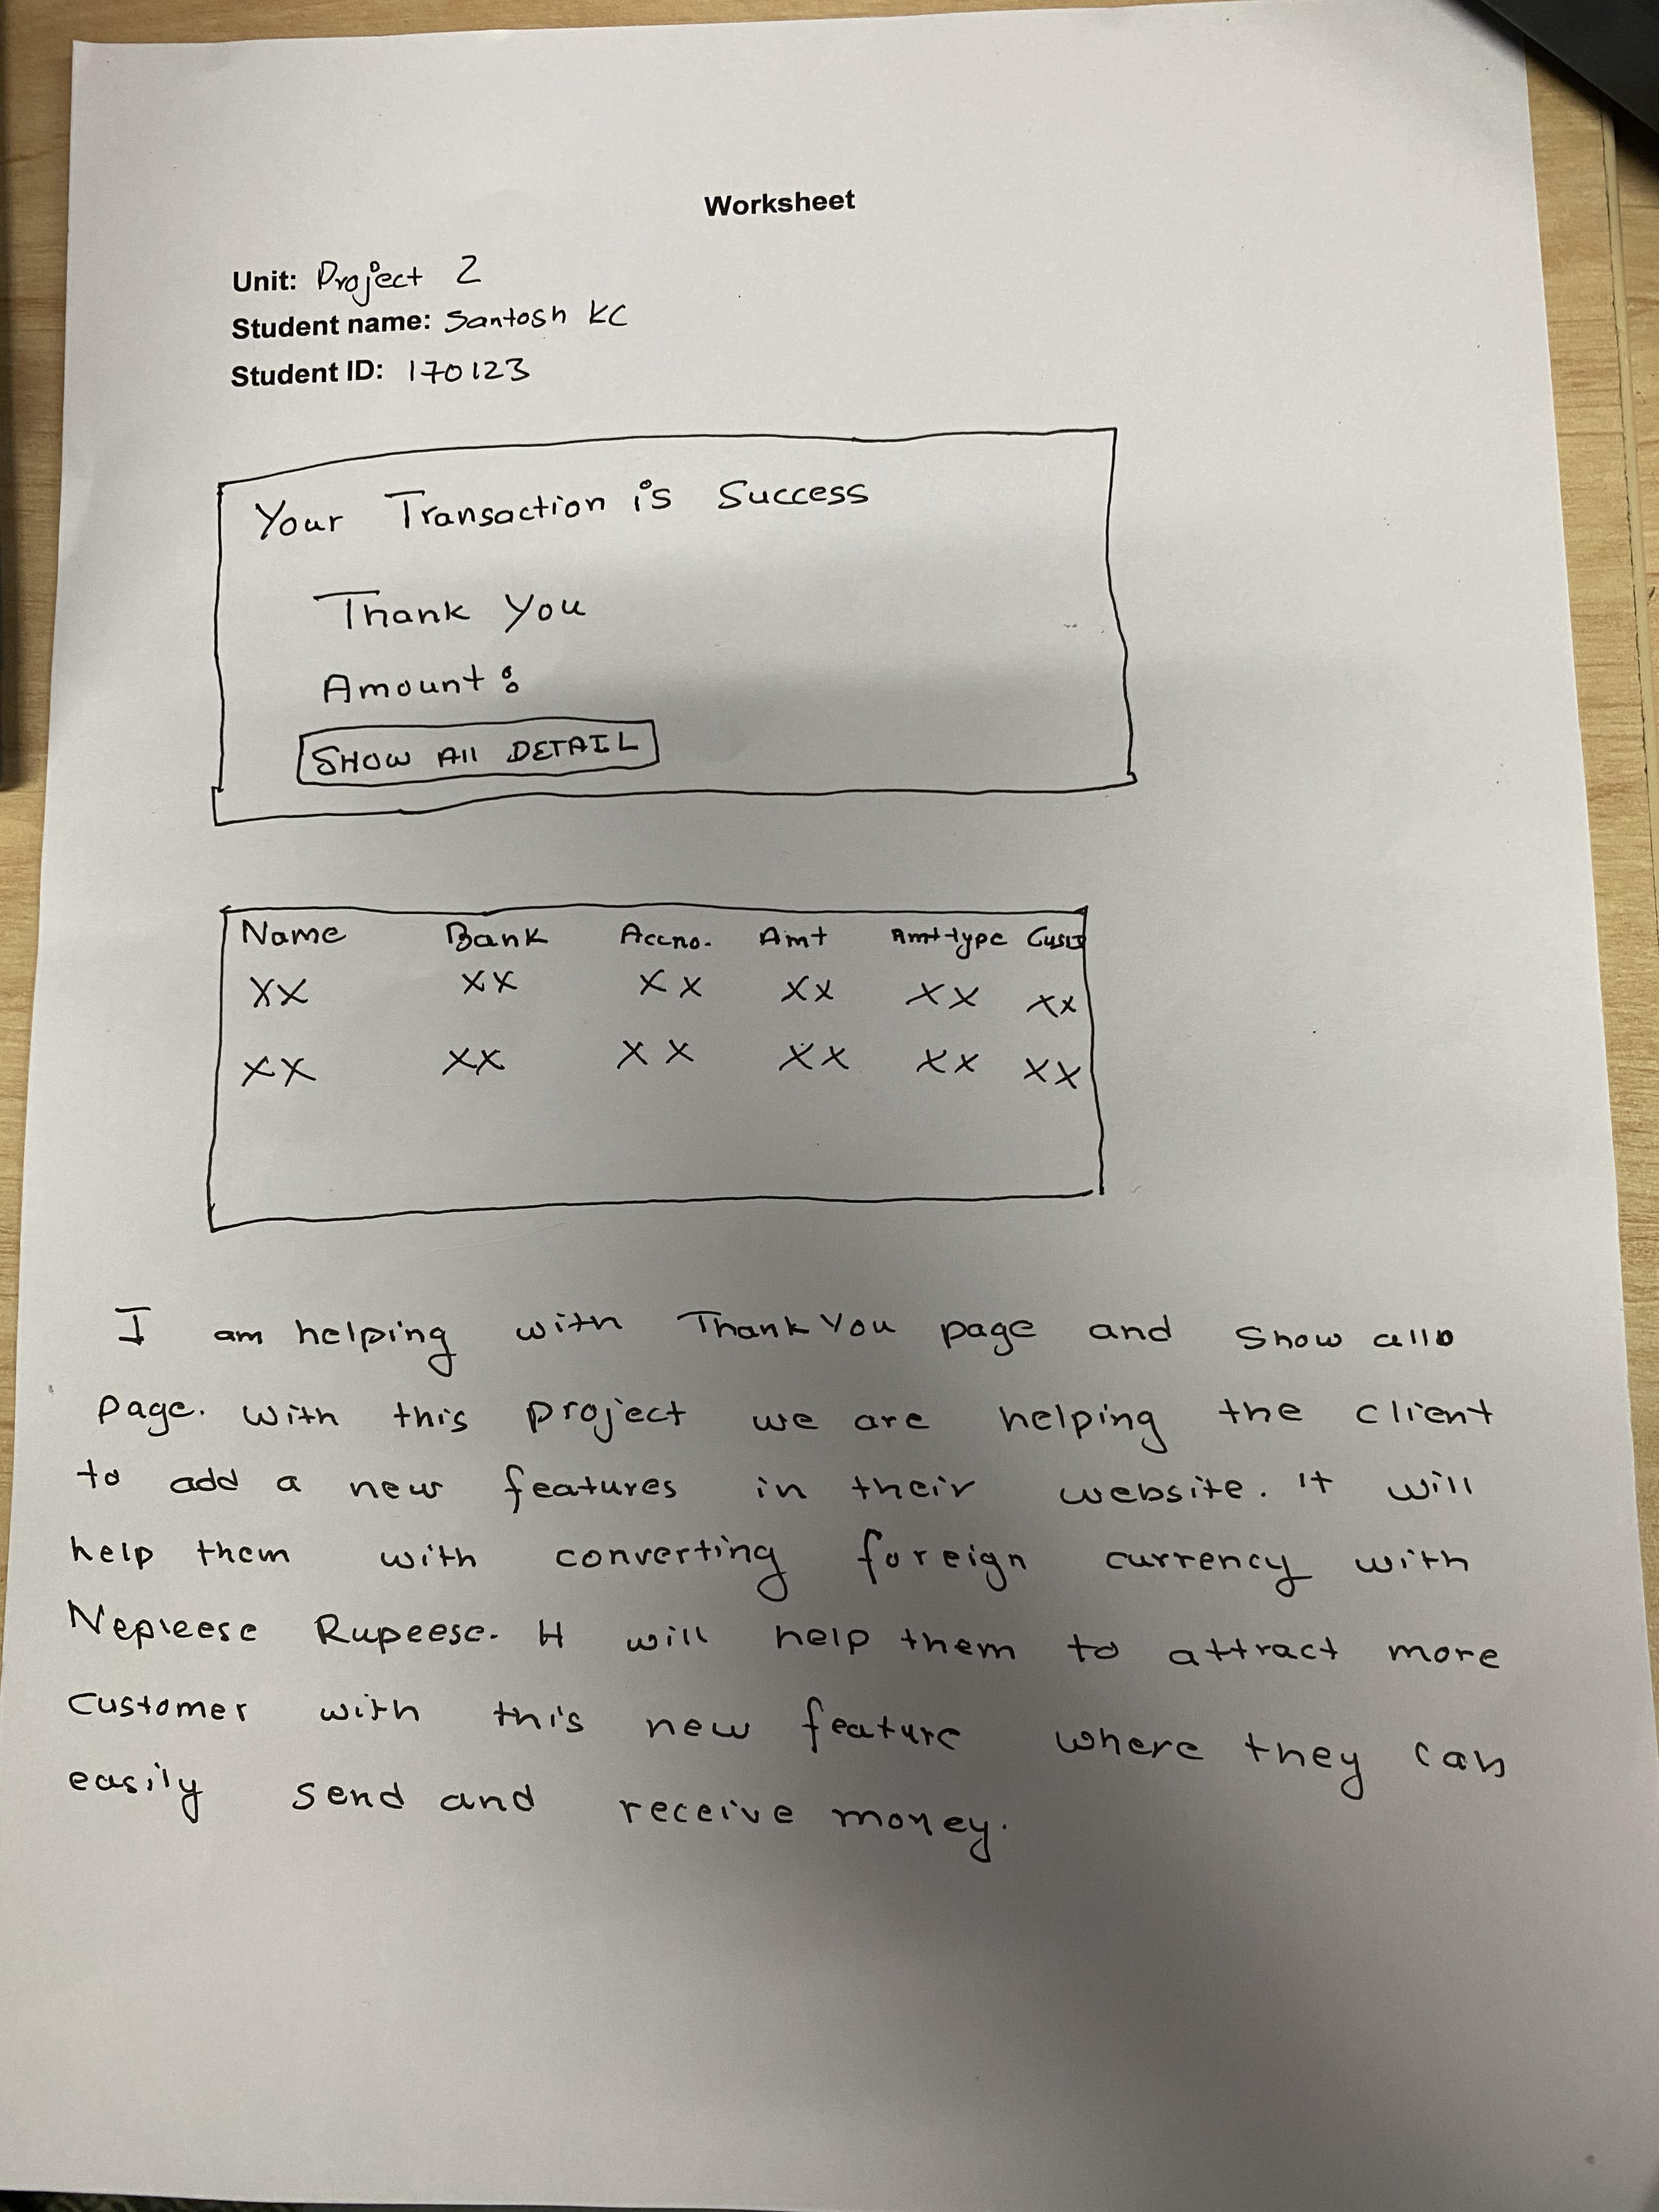 Worksheet
Unit: Project 2
Student name: Santosh KC
Student ID: 170123
Your Transaction is Success
Thank You
Amount:
SHOW All DETAIL
Name Bank Accno. Amt Amt-type
XX XX XX XX XX XX
XX XX XX XX XX XX
I am helping with Thank You page and Show all
page. With this project we are helping the client
to add a new features in their website. It will
help them with converting foreign currency with
Nepleese Rupeese. It will help them to attract more
Customer with this new feature where they can
easily send and receive money.